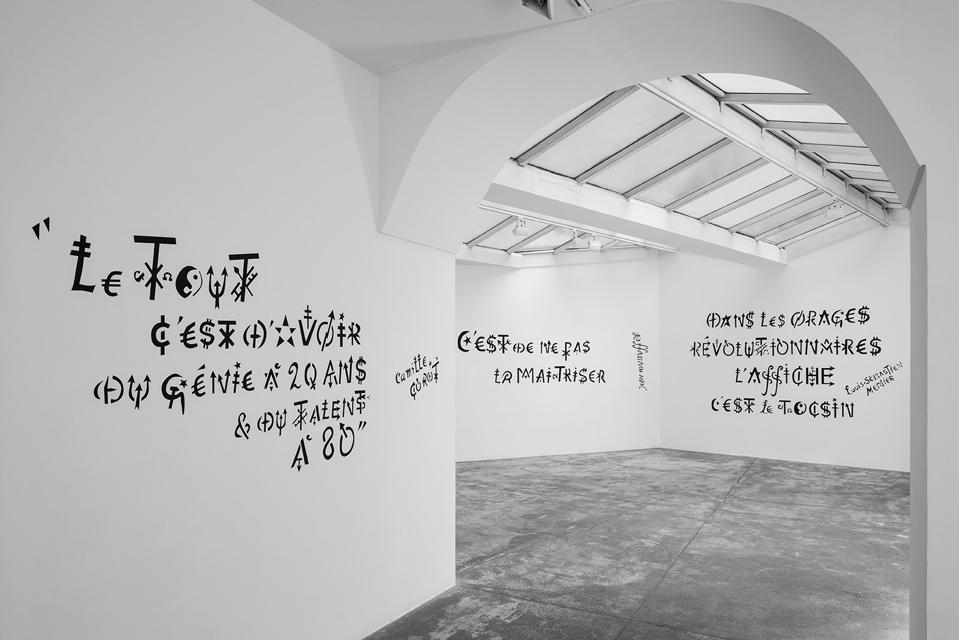 "Le TOUT
C'EST D'AVOIR
DU GÉNIE À 20 ANS
& DU TALENT
À 80"
Camille
COROT
C'EST DE NE PAS
LA MAITRISER
DANS LES ORAGES
RÉVOLUTIONNAIRES
L'AFFICHE
C'EST le TOCSIN
Louis-SÉBASTIEN
MERCIER